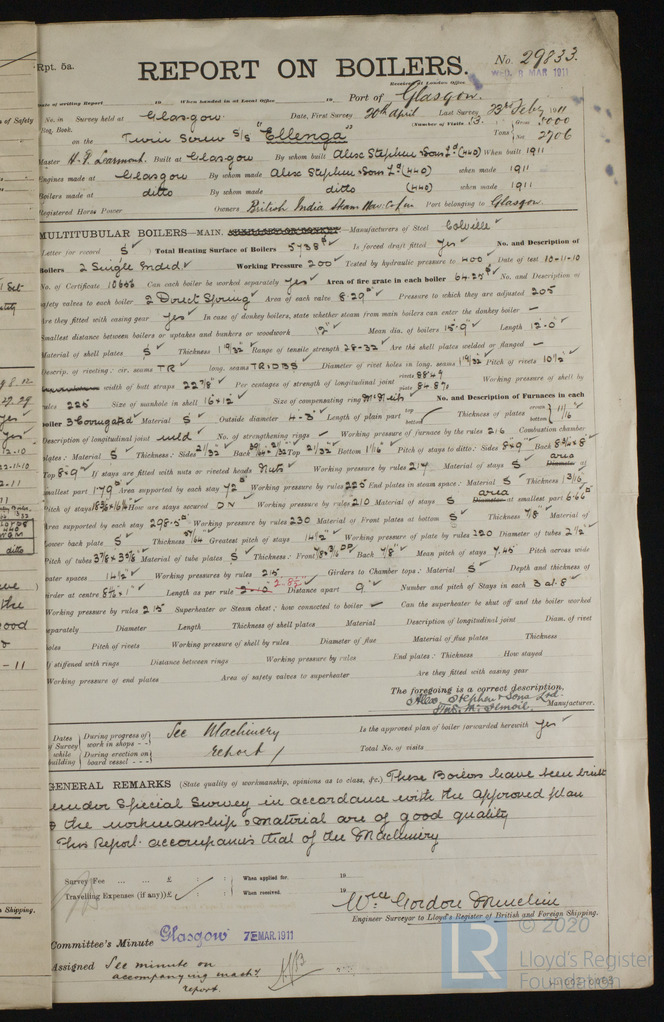 Rpt. 5a.
REPORT ON BOILERS.
No. 29833.
WED. 8 MAR 1911
Date of writing Report 19 When handed in at Local Office 19 Port of Glasgow.
No. in Survey held at Glasgow Date, First Survey 20th April Last Survey 23rd Feby 1911
Reg. Book. (Number of Visits Gross 5000
on the Twin Screw S/S "Ellenga" Tons Net 2706
Master Built at Glasgow By whom built Alex Stephen & Sons Ld (440) When built 1911
Engines made at Glasgow By whom made Alex Stephen & Sons Ld (440) when made 1911
Boilers made at ditto By whom made ditto (440) when made 1911
Registered Horse Power Owners British India Steam Nav: Co Port belonging to Glasgow.
MULTITUBULAR BOILERS—MAIN, —Manufacturers of Steel Colville
(Letter for record S) Total Heating Surface of Boilers 5738 Is forced draft fitted yes No. and Description of
Boilers 2 Single Ended Working Pressure 200 Tested by hydraulic pressure to 400 Date of test 10-11-10
No. of Certificate Can each boiler be worked separately yes Area of fire grate in each boiler 64.25 No. and Description of
safety valves to each boiler 2 Direct Spring Area of each valve 8.29 Pressure to which they are adjusted 205
Are they fitted with easing gear yes In case of donkey boilers, state whether steam from main boilers can enter the donkey boiler —
Smallest distance between boilers or uptakes and bunkers or woodwork 12" Mean dia. of boilers 15-9" Length 12-0"
Material of shell plates S Thickness 1 9/32" Range of tensile strength 28-32 Are the shell plates welded or flanged —
Descrip. of riveting: cir. seams TR long. seams TRIDBS Diameter of rivet holes in long. seams 1 9/32" Pitch of rivets 10 1/2"
width of butt straps 22 7/8" Per centages of strength of longitudinal joint rivets 88.49 plate 84.870 Working pressure of shell by
rules 225 Size of manhole in shell 16" x 12" Size of compensating ring No. and Description of Furnaces in each
boiler 3 Corrugated Material S Outside diameter 4-3" Length of plain part top bottom Thickness of plates crown bottom 11/16"
Description of longitudinal joint weld No. of strengthening rings — Working pressure of furnace by the rules 216 Combustion chamber
plates: Material S Thickness: Sides 21/32" Back Top 21/32" Bottom 1 1/16" Pitch of stays to ditto: Sides 8" x 9" Back
Top 8" x 9" If stays are fitted with nuts or riveted heads Nuts Working pressure by rules 214 Material of stays S area at
smallest part 1.79 Area supported by each stay 72 Working pressure by rules 225 End plates in steam space: Material S Thickness 1 3/16"
Pitch of stays How are stays secured DN Working pressure by rules 210 Material of stays S area at smallest part 6.66
Area supported by each stay 298.5 Working pressure by rules 230 Material of Front plates at bottom S Thickness 7/8" Material of
Lower back plate S Thickness 57/64 Greatest pitch of stays 14 1/2" Working pressure of plate by rules 220 Diameter of tubes 2 1/2"
Pitch of tubes 3 7/8" x 3 5/8" Material of tube plates S Thickness: Front Back 7/8" Mean pitch of stays 7.45" Pitch across wide
water spaces 14 1/2" Working pressures by rules 215 Girders to Chamber tops: Material S Depth and thickness of
girder at centre Length as per rule 2.85" Distance apart 9" Number and pitch of Stays in each 3 at 8"
Working pressure by rules 215 Superheater or Steam chest; how connected to boiler — Can the superheater be shut off and the boiler worked
separately Diameter Length Thickness of shell plates Material Description of longitudinal joint Diam. of rivet
holes Pitch of rivets Working pressure of shell by rules Diameter of flue Material of flue plates Thickness
If stiffened with rings Distance between rings Working pressure by rules End plates: Thickness How stayed
Working pressure of end plates Area of safety valves to superheater Are they fitted with easing gear
The foregoing is a correct description,
Alex Stephen & Sons Ltd.
Manufacturer.
Dates of Survey while building During progress of work in shops - - See Machinery Is the approved plan of boiler forwarded herewith yes
During erection on board vessel - - - report Total No. of visits
GENERAL REMARKS (State quality of workmanship, opinions as to class, &c.) These Boilers have been built
under Special Survey in accordance with the approved plan
& the workmanship & material are of good quality
This Report accompanies that of the Machinery
Survey Fee ... ... ... £ : : When applied for. 19
Travelling Expenses (if any) £ : : When received. 19
Engineer Surveyor to Lloyd's Register of British and Foreign Shipping.
Committee's Minute Glasgow 7 MAR. 1911
Assigned See minute on
accompanying mach'y
report.
© 2020
LR
Lloyd's Register
Foundation